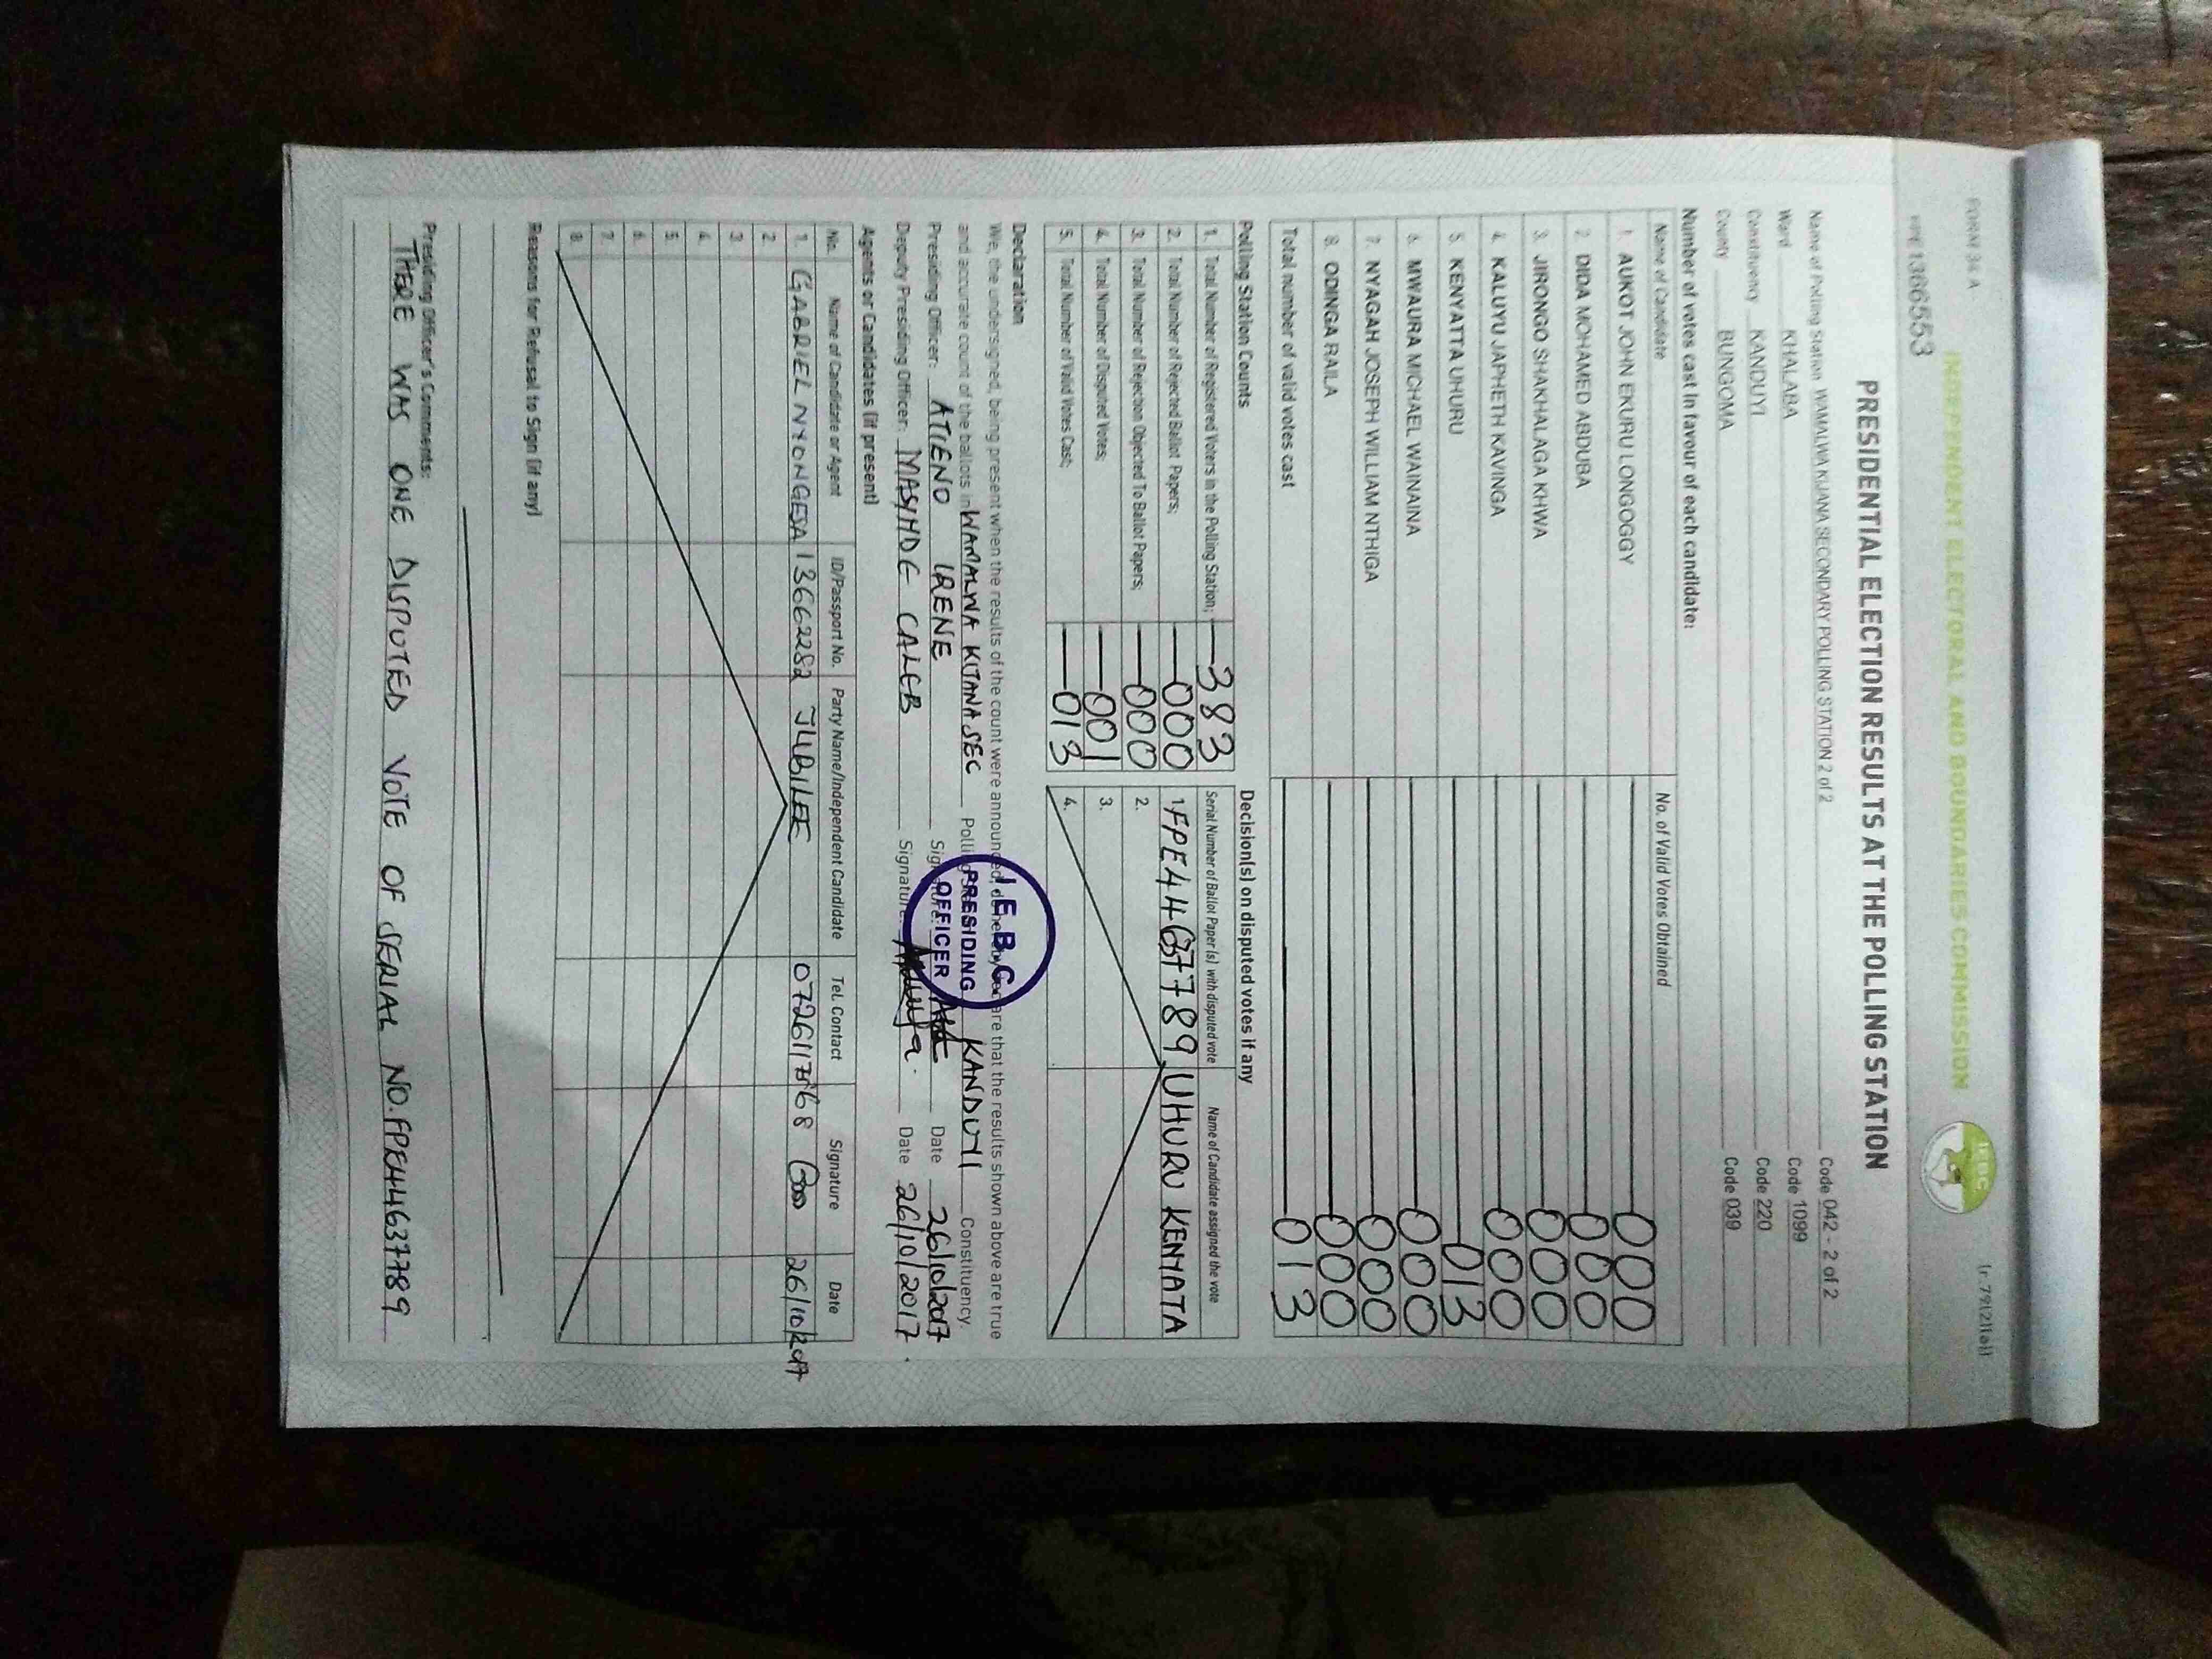 FORM 34 A
INDEPENDENT ELECTORAL AND BOUNDARIES COMMISSION
IEBC
(r.79(2)(a))
PPE 1366553
PRESIDENTIAL ELECTION RESULTS AT THE POLLING STATION
Name of Polling Station WAMALWA KIJANA SECONDARY POLLING STATION 2 of 2 Code 042 - 2 of 2
Ward KHALABA Code 1099
Constituency KANDUYI Code 220
County BUNGOMA Code 039
Number of votes cast in favour of each candidate:
Name of Candidate No. of Valid Votes Obtained
1. AUKOT JOHN EKURU LONGOGGY 000
2. DIDA MOHAMED ABDUBA 000
3. JIRONGO SHAKHALAGA KHWA 000
4. KALUYU JAPHETH KAVINGA 000
5. KENYATTA UHURU 013
6. MWAURA MICHAEL WAINAINA 000
7. NYAGAH JOSEPH WILLIAM NTHIGA 000
8. ODINGA RAILA 000
Total number of valid votes cast 013
Polling Station Counts
1. Total Number of Registered Voters in the Polling Station; 383
2. Total Number of Rejected Ballot Papers; 000
3. Total Number of Rejection Objected To Ballot Papers; 000
4. Total Number of Disputed Votes; 001
5. Total Number of Valid Votes Cast; 013
Decision(s) on disputed votes if any
Serial Number of Ballot Paper(s) with disputed vote Name of Candidate assigned the vote
1. FPE44637789 UHURU KENYATA
2.
3.
4.
Declaration
We, the undersigned, being present when the results of the count were announced, do hereby declare that the results shown above are true
and accurate count of the ballots in WAMALWA KITANA SEC Polling Station KANDUYI Constituency.
Presiding Officer: ATIENO IRENE Signature: Date 26/10/2017
Deputy Presiding Officer: MASYNDE CALEB Signature: Date 26/10/2017
I.E.B.C
PRESIDING
OFFICER
Agents or Candidates (if present)
No. Name of Candidate or Agent ID/Passport No. Party Name/Independent Candidate Tel. Contact Signature Date
1. GABRIEL NYONGESA 13662282 JUBILEE 26/10/2017
2.
3.
4.
5.
6.
7.
8.
Reasons for Refusal to Sign (if any)
Presiding Officer's Comments:
THERE WAS ONE DISPUTED VOTE OF SERIAL NO. FPE44637789